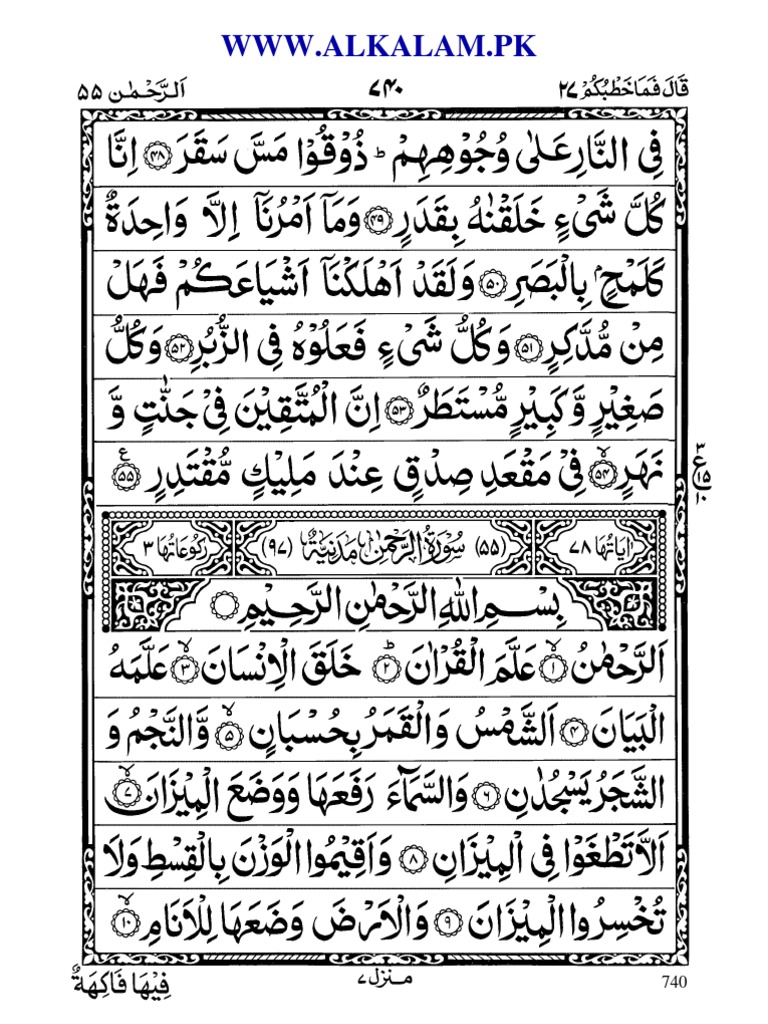 WWW.ALKALAM.PK
قَالَ فَمَا خَطْبُكُمْ ٢٧ ٧٤٠ اَلرَّحْمٰن ٥٥
فِي النَّارِ عَلٰى وُجُوْهِهِمْ ؕ ذُوْقُوْا مَسَّ سَقَرَ ﴿٤٨﴾ اِنَّا
كُلَّ شَيْءٍ خَلَقْنٰهُ بِقَدَرٍ ﴿٤٩﴾ وَمَاۤ اَمْرُنَاۤ اِلَّا وَاحِدَةٌ
كَلَمْحٍۭ بِالْبَصَرِ ﴿٥٠﴾ وَلَقَدْ اَهْلَكْنَاۤ اَشْيَاعَكُمْ فَهَلْ
مِنْ مُّدَّكِرٍ ﴿٥١﴾ وَكُلُّ شَيْءٍ فَعَلُوْهُ فِي الزُّبُرِ ﴿٥٢﴾ وَكُلُّ
صَغِيْرٍ وَّكَبِيْرٍ مُّسْتَطَرٌ ﴿٥٣﴾ اِنَّ الْمُتَّقِيْنَ فِيْ جَنّٰتٍ وَّ
نَهَرٍ ۙ﴿٥٤﴾ فِيْ مَقْعَدِ صِدْقٍ عِنْدَ مَلِيْكٍ مُّقْتَدِرٍ ﴿٥٥﴾ ع
٣ ع ١٥ ١٠
اٰيَاتُهَا ٧٨ (٥٥) سُوْرَةُ الرَّحْمٰنِ مَدَنِيَّةٌ (٩٧) رُكُوْعَاتُهَا ٣
بِسْمِ اللهِ الرَّحْمٰنِ الرَّحِيْمِ
اَلرَّحْمٰنُ ۙ﴿١﴾ عَلَّمَ الْقُرْاٰنَ ؕ﴿٢﴾ خَلَقَ الْاِنْسَانَ ۙ﴿٣﴾ عَلَّمَهُ
الْبَيَانَ ﴿٤﴾ اَلشَّمْسُ وَالْقَمَرُ بِحُسْبَانٍ ۙ﴿٥﴾ وَّالنَّجْمُ وَ
الشَّجَرُ يَسْجُدٰنِ ﴿٦﴾ وَالسَّمَآءَ رَفَعَهَا وَوَضَعَ الْمِيْزَانَ ۙ﴿٧﴾
اَلَّا تَطْغَوْا فِي الْمِيْزَانِ ﴿٨﴾ وَاَقِيْمُوا الْوَزْنَ بِالْقِسْطِ وَلَا
تُخْسِرُوا الْمِيْزَانَ ﴿٩﴾ وَالْاَرْضَ وَضَعَهَا لِلْاَنَامِ ۙ﴿١٠﴾
740 مـنزل ٧ فِيْهَا فَاكِهَةٌ